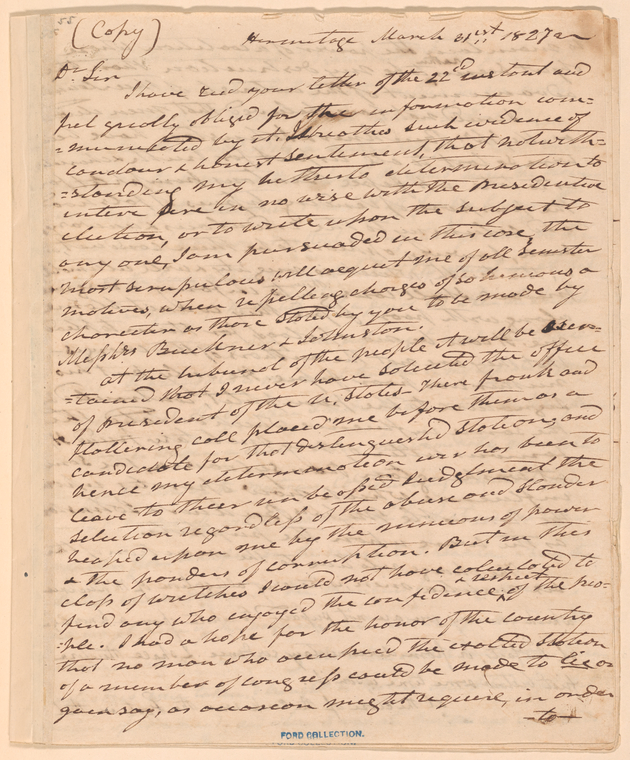 55
(Copy)
Hermitage March 31st 1827
Dr Sir
I have red your letter of the 22nd instant and
feel greatly obliged for the information com=
=municated by it. It breathes such evidence of
candour & honest sentiment, that notwith=
=standing my hitherto determination to
interefere in no wise with the Presidential
election, or to write upon the subject to
any one, I am persuaded in this case, the
most scrupulous will acquit me of all sinister
motives, when repelling charges of so heinous a
character as those stated by you to be made by
Messrs Buckner & Johnston.
at the tribunal of the people it will be ascer=
=tained that I never have solicited the office
of President of the U. States. There frank and
flattering call placed me before them as a
candidate for that distinguished station, and
hence my determination ever has been to
leave to their unbeossed Judgement the
selection regardless of the abuse and slander
heaped upon me by the minions of power
& the panders of corruption. But in this
class of wretches I would not have calculated to
find any who enjoyed the confidence & respect of the peo=
=ple. I had a hope for the honor of the country
that no man who occupied the exalted station
of a member of congress could be made to lie or
gain say, as occasion might require, in order
to
FORD COLLECTION.